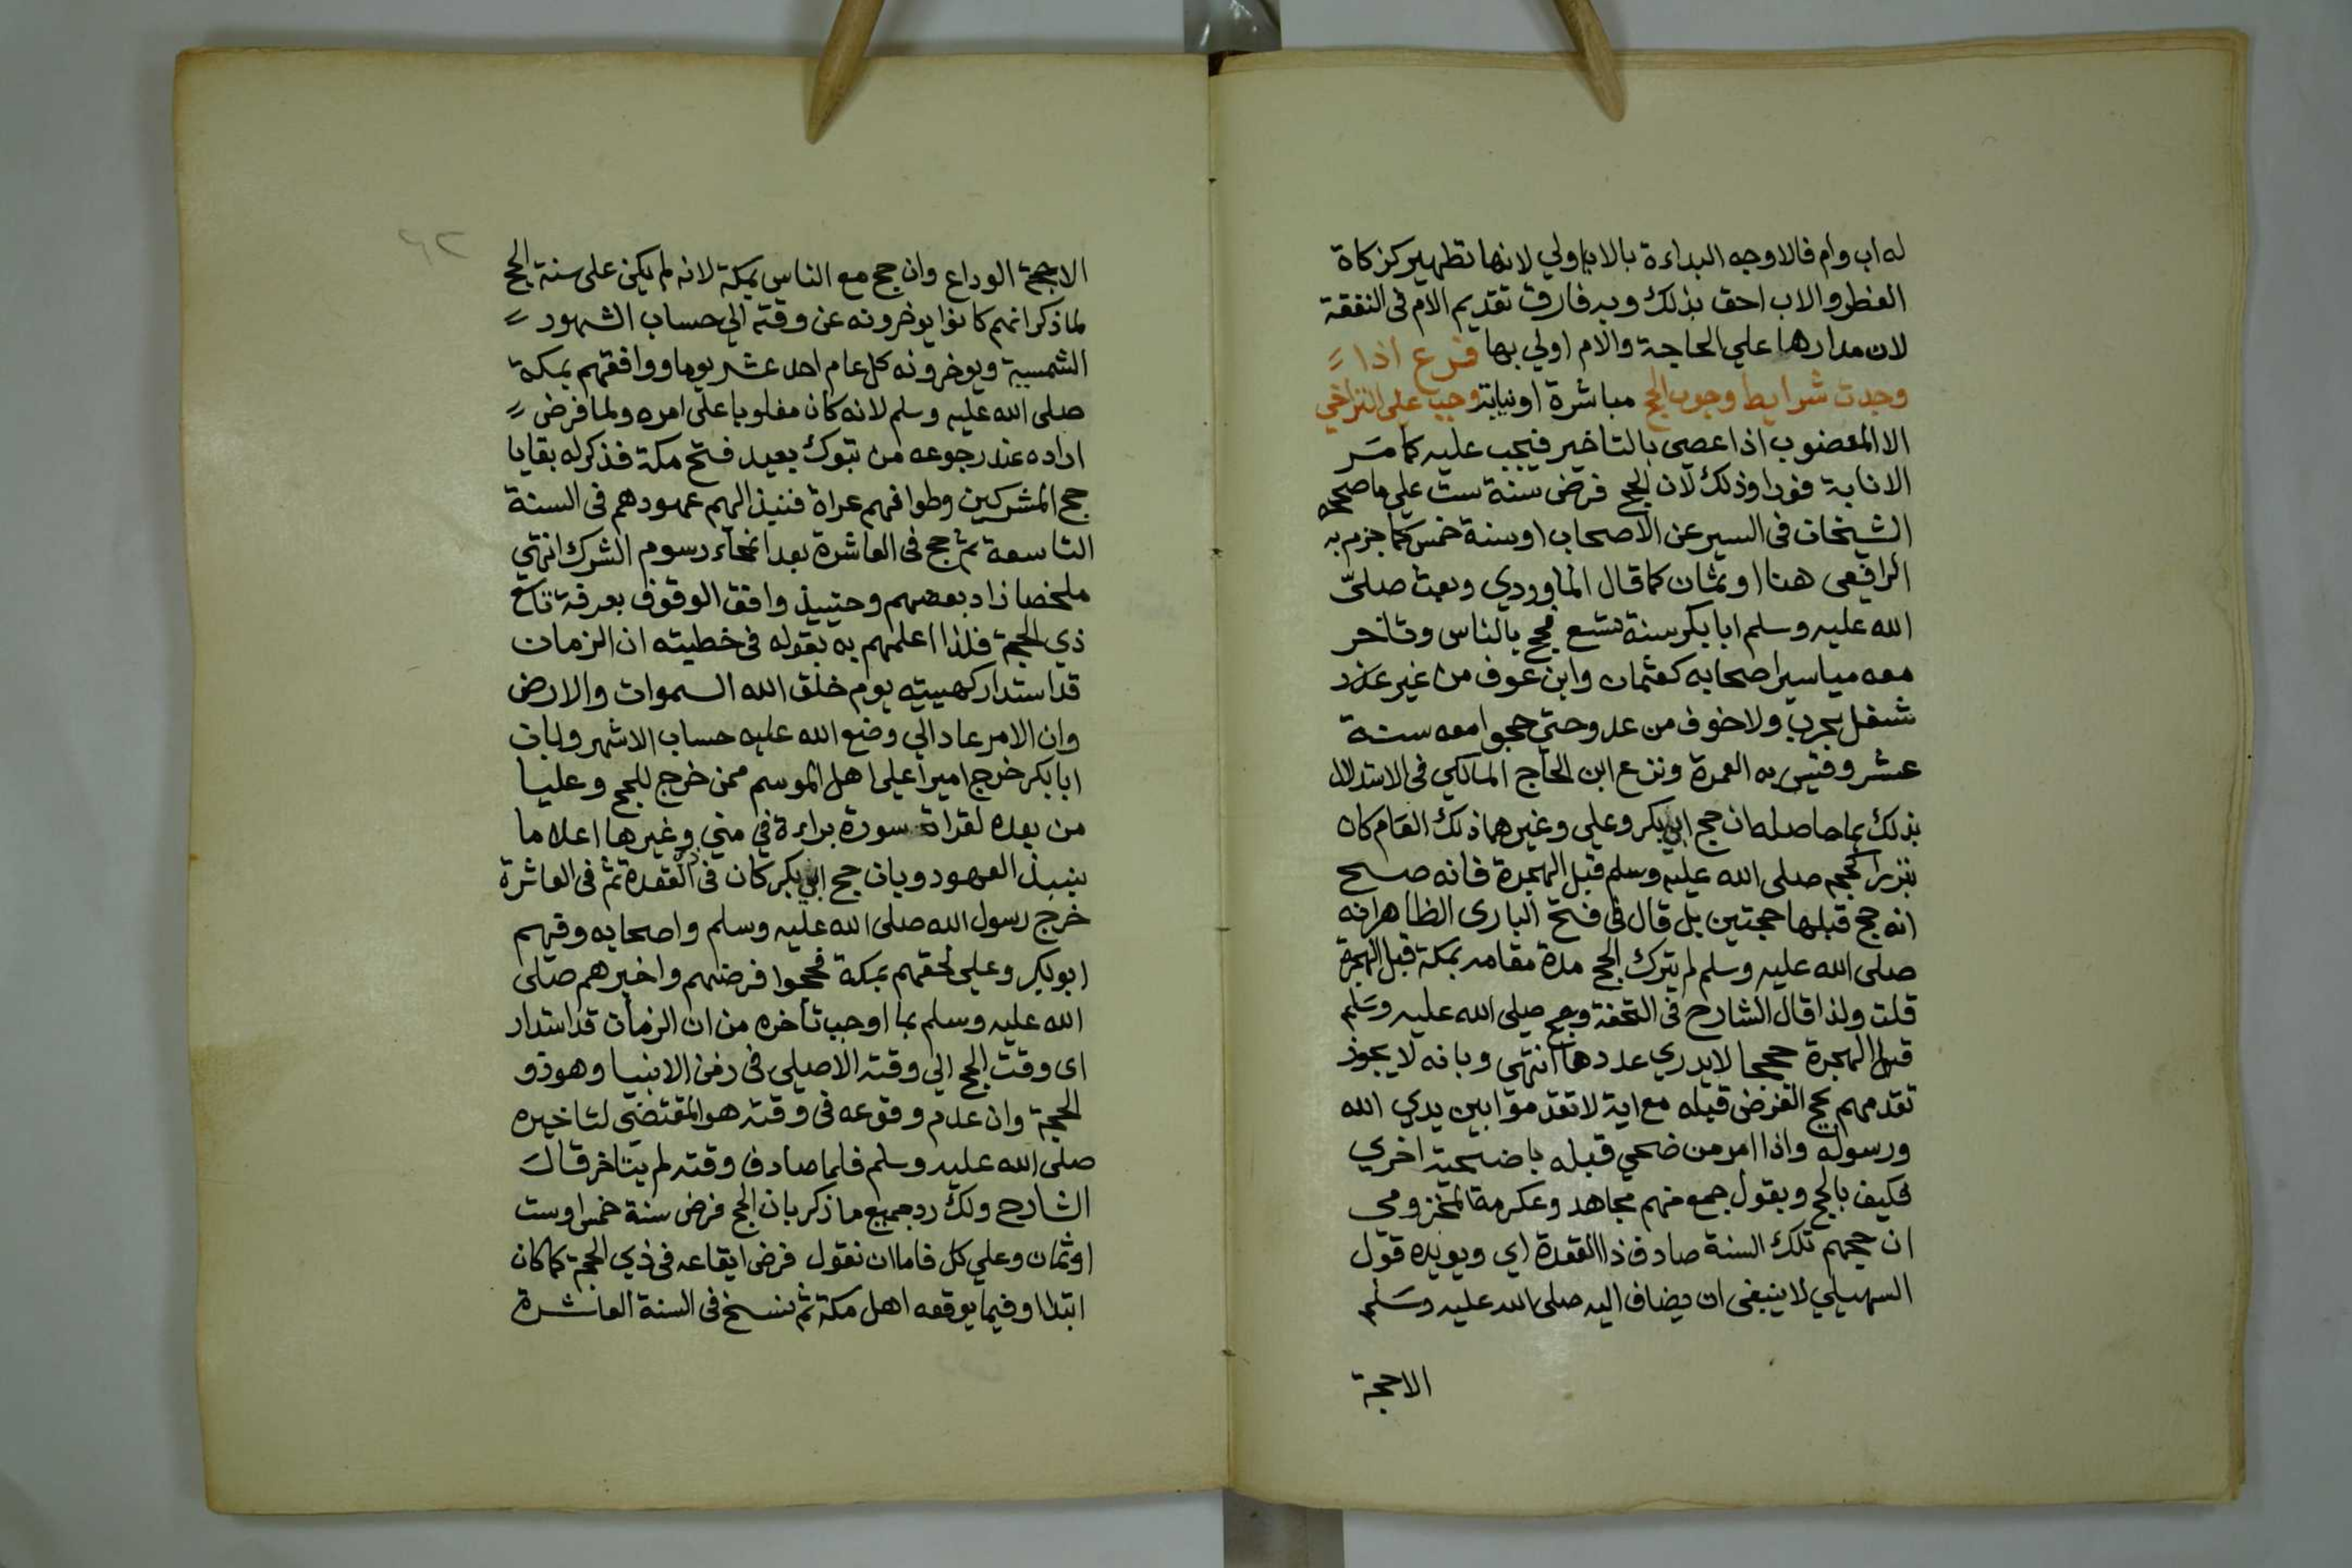 له اب وام فالاوجه البداءة بالاب اولي لانها تطهير كزكاة
الفطر والاب احق بذلك وبه فارق تقديم الام فى النفقة
لان مدارها علي الحاجة والام اولي بها فرع اذا
وجدت شرايط وجوب الحج مباشرة او نيابة وجب على التراخي
الا المعضوب اذا عصي بالتاخير فيجب عليه كما مر
الانابة فورا وذلك لان الحج فرض سنة ست علي ما صححه
الشيخان فى السير عن الاصحاب او سنة خمس كما جزم به
الرافعى هنا او ثمان كما قال الماوردي وبعث صلى
الله عليه وسلم ابا بكر سنة تسع فحج بالناس وتاخر
معه مياسير اصحابه كعثمان وابن عوف من غير عذر
شغل بحرب ولا خوف من عدو حتي حجوا معه سنة
عشر وقيس به العمرة ونزع ابن الحاج المالكي فى الاستدلال
بذلك بما حاصله ان حج ابي بكر وعلي وغيرهما ذلك العام كان
تبررا كحجه صلى الله عليه وسلم قبل الهجرة فانه صح
انه حج قبلها حجتين بل قال فى فتح البارى الظاهر انه
صلى الله عليه وسلم لم يترك الحج مدة مقامه بمكة قبل الهجرة
قلت ولذا قال الشارح فى التحفة وحج صلى الله عليه وسلم
قبل الهجرة حججا لا يدري عددها انتهى وبانه لا يجوز
تقدمهم بحج الفرض قبله مع اية لا تقدموا بين يدي الله
ورسوله واذا امر من ضحي قبله باضحية اخري
فكيف بالحج وبقول جمع منهم مجاهد وعكرمة المخزومي
ان حجهم تلك السنة صادف ذا القعدة اي ويويده قول
السهيلي لا ينبغى ان يضاف اليه صلى الله عليه وسلم
الا حجة
٦٢
الا حجة الوداع وان حج مع الناس بمكة لانه لم يكن على سنة الحج
لما ذكر انهم كانوا يوخرونه عن وقته الي حساب الشهور
الشمسية ويوخرونه كل عام احد عشر يوما ووافقهم بمكة
صلى الله عليه وسلم لانه كان مغلوبا على امره ولما فرض
اراده عند رجوعه من تبوك بعيد فتح مكة فذكر له بقايا
حج المشركين وطوافهم عراة فنبذ اليهم عهودهم فى السنة
التاسعة ثم حج فى العاشرة بعد انمحاء رسوم الشرك انتهي
ملخصا زاد بعضهم وحينيذ وافق الوقوف بعرفة تاسع
ذي الحجة فلذا اعلمهم به بقوله فى خطبته ان الزمان
قد استدار كهييته يوم خلق الله السموات والارض
وان الامر عاد الي وضع الله عليه حساب الاشهر وبان
ابا بكر خرج اميرا على اهل الموسم ممن خرج للحج وعليا
من بعده لقراة سورة براءة في مني وغيرها اعلاما
بنبذ العهود وبان حج ابي بكر كان فى القعدة ثم فى العاشرة
خرج رسول الله صلى الله عليه وسلم واصحابه وفيهم
ابو بكر وعلي لحقهم بمكة فحجوا فرضهم واخبرهم صلى
الله عليه وسلم بما اوجب تأخره من ان الزمان قد استدار
اى وقت الحج الي وقته الاصلي فى زمن الانبيا وهو ذو
الحجة وان عدم وقوعه فى وقته هو المقتضي لتاخيره
صلى الله عليه وسلم فلما صادف وقته لم يتاخر قال
الشارح ولك رد جميع ما ذكر بان الحج فرض سنة خمس او ست
او ثمان وعلي كل فاما ان نقول فرض ايقاعه فى ذي الحجة كما كان
ابتدا وفيما يوقعه اهل مكة ثم نسخ فى السنة العاشرة